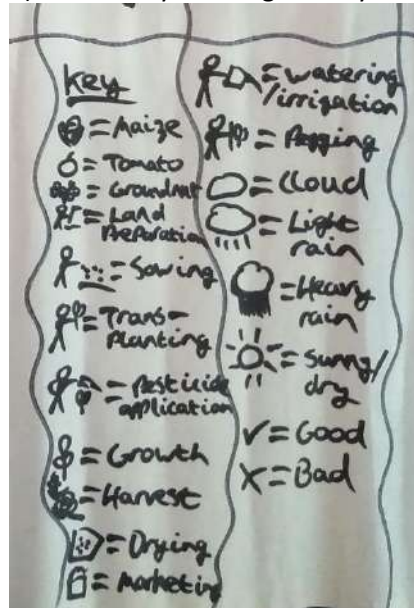 Key
= Maize
= Tomato
= Groundnut
= Land
Preparation
= Sowing
= Trans-
Planting
= Pesticide
application
= Growth
= Harvest
= Drying
= Marketing
= watering
/irrigation
= Pegging
= Cloud
= Light
rain
= Heavy
rain
= Sunny/
dry
✓ = Good
X = Bad